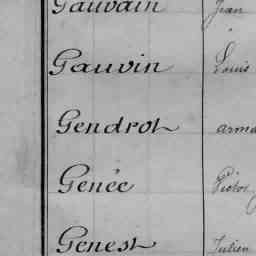 Gauvain Jean
Gauvin Louis
Gendrot arma
Genée Victor
Genest Julien